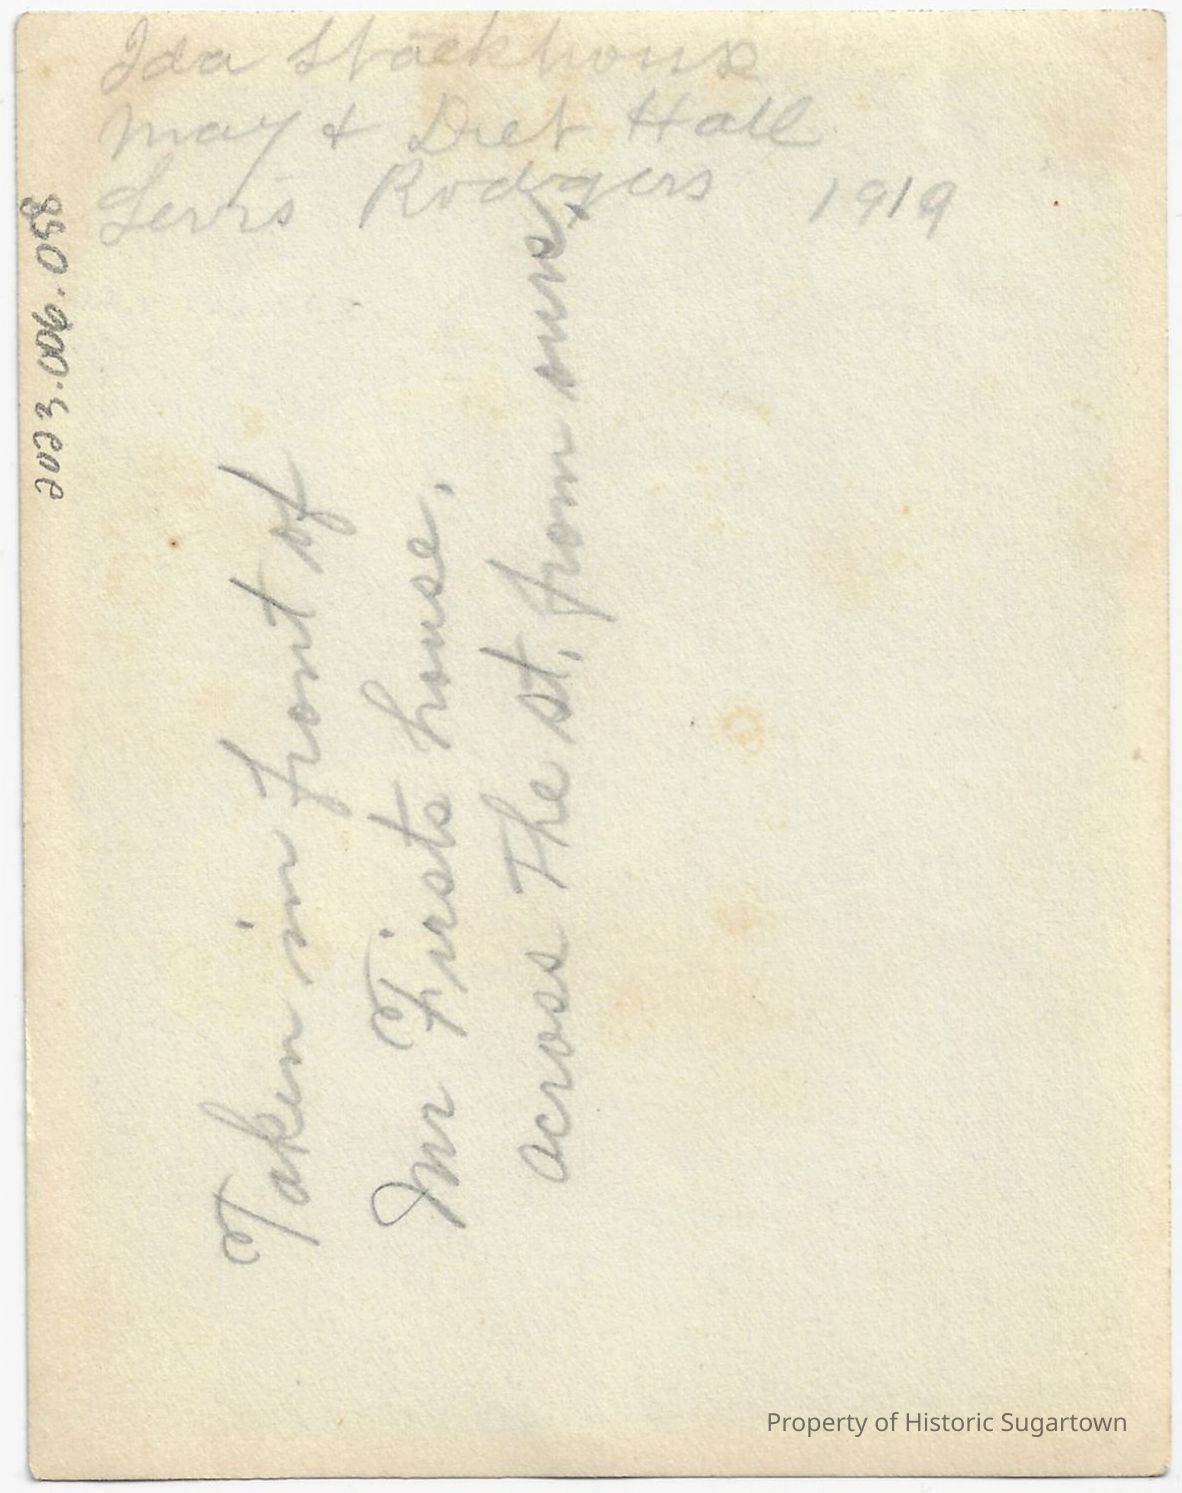 Ida Stackhouse
May & Dret Hall
Lewis Rodgers 1919
2023.006.058
Taken in front of
Mr Firsts house,
across The st, from ours
Property of Historic Sugartown